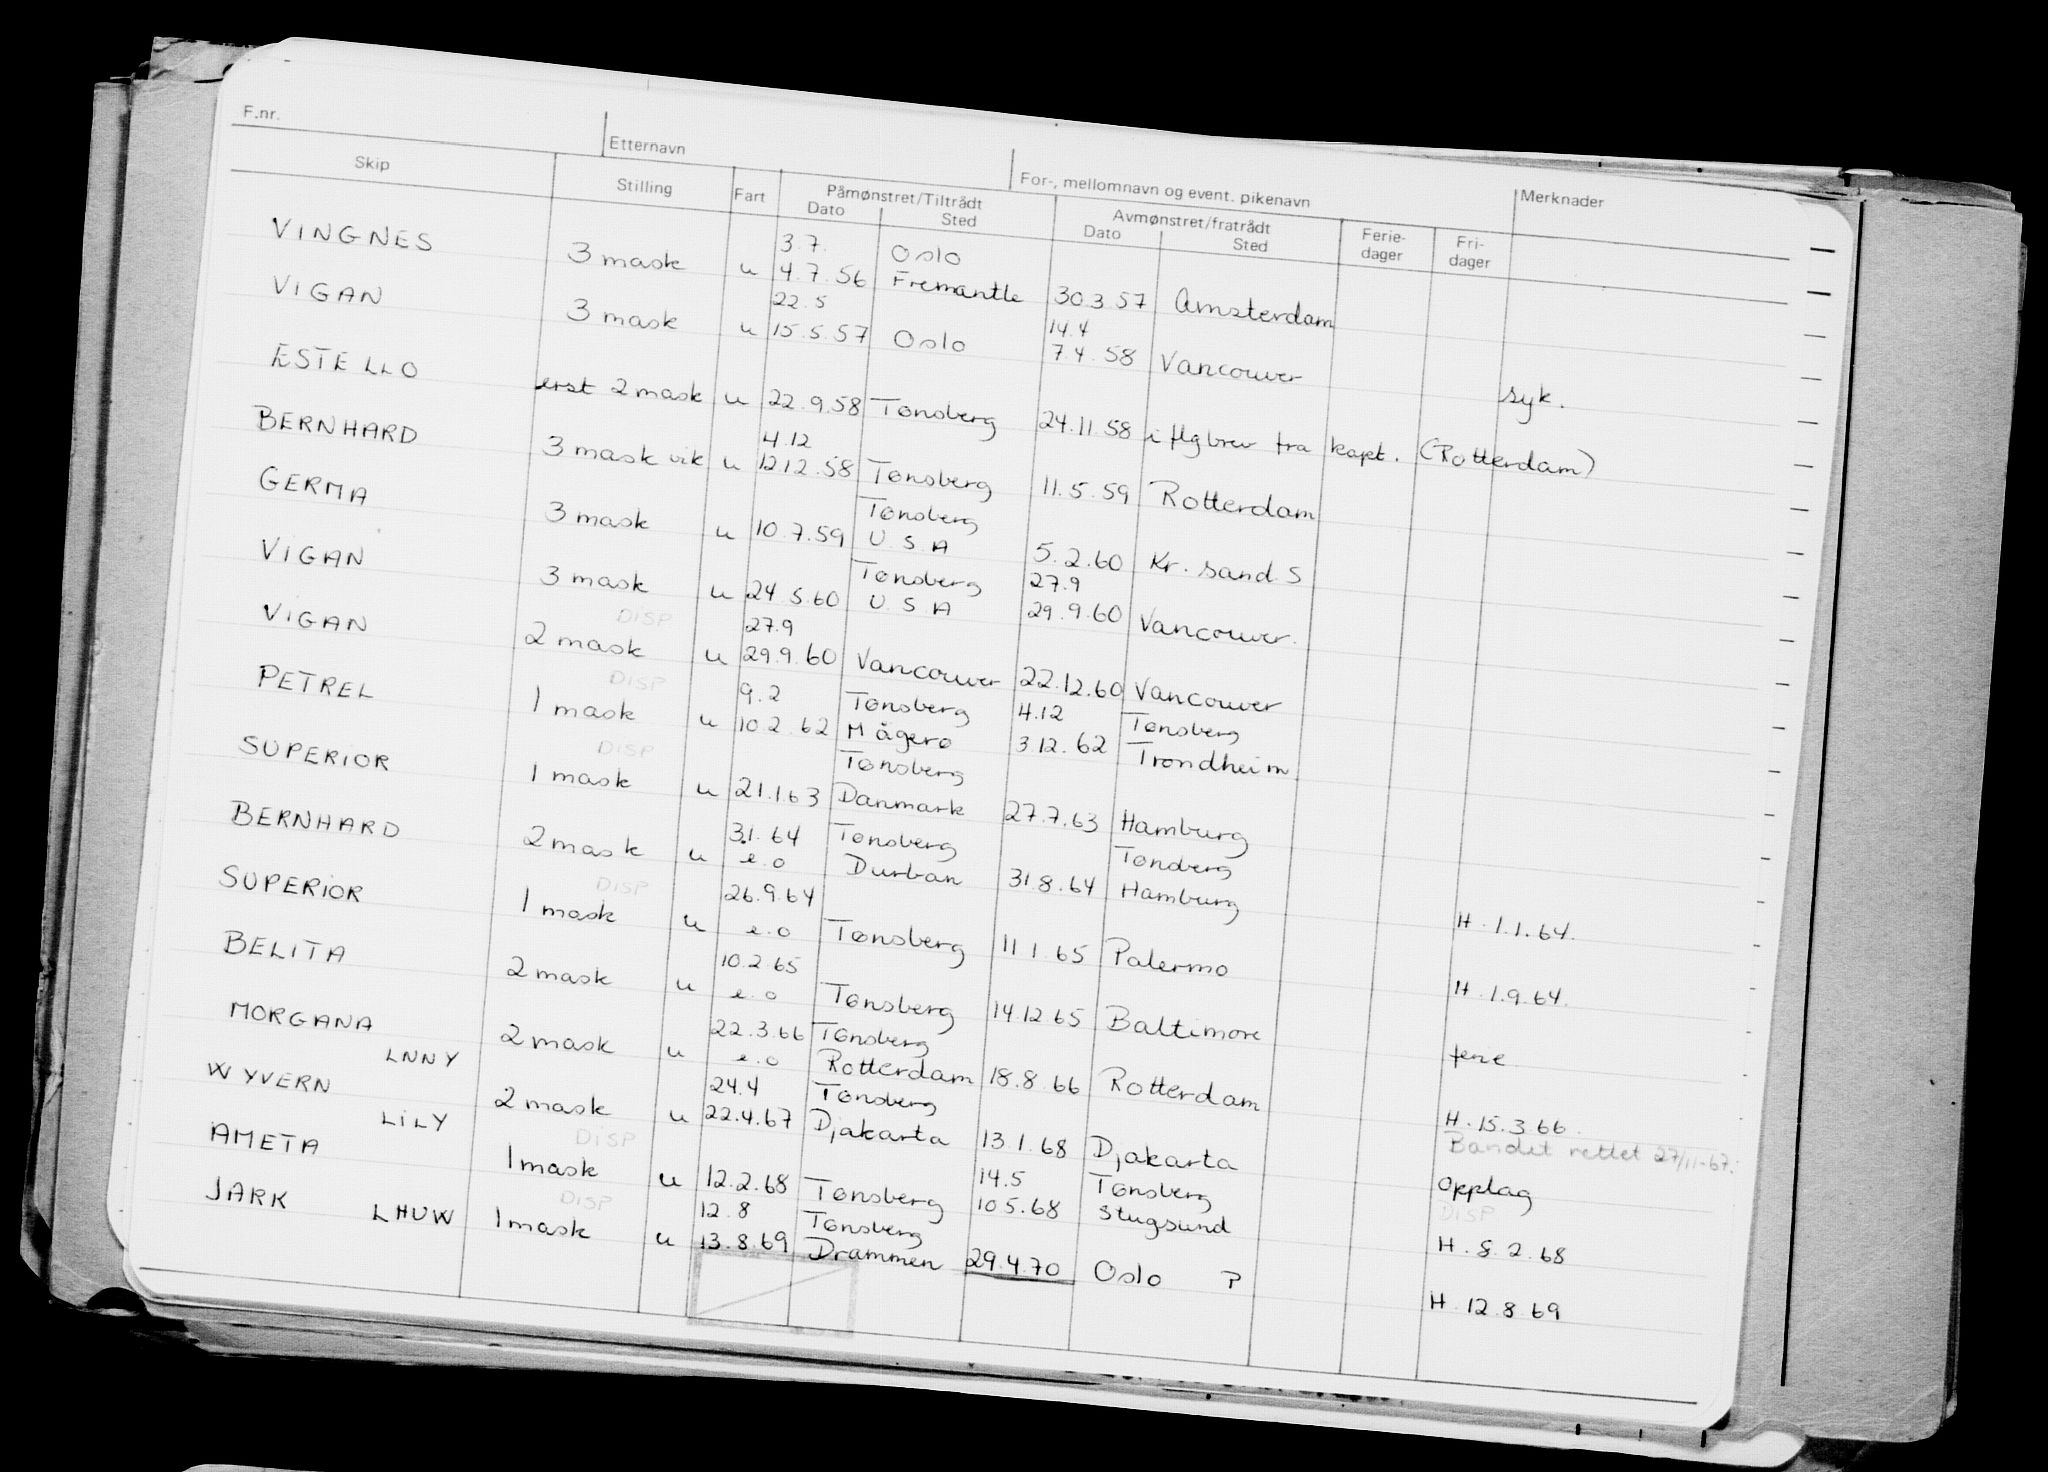 F.nr. Etternavn For-, mellomnavn og event. pikenavn Merknader
Skip Stilling Fart Påmønstret/Tiltrådt Avmønstret/fratrådt Ferie- Fri-
Dato Sted Dato Sted dager dager
VINGNES 3.7. Oslo
3 mask u 4.7.56 Fremantle 30.3.57 Amsterdam
VIGAN 22.5 14.4
3 mask u 15.5.57 Oslo 7.4.58 Vancouver syk.
ESTELLO
erst 2 mask u 22.9.58 Tønsberg 24.11.58 i flg brev fra kapt. (Rotterdam)
BERNHARD 4.12
3 mask vik u 12.12.58 Tønsberg 11.5.59 Rotterdam
GERMA Tønsberg
3 mask u 10.7.59 U.S.A 5.2.60 Kr.sand S
VIGAN Tønsberg 27.9
3 mask u 24.5.60 U.S.A 29.9.60 Vancouver.
VIGAN DISP 27.9
2 mask u 29.9.60 Vancouver 22.12.60 Vancouver
PETREL DISP 9.2 Tønsberg 4.12 Tønsberg
1 mask u 10.2.62 Mågerø 3.12.62 Trondheim
SUPERIOR DISP Tønsberg
1 mask u 21.1.63 Danmark 27.7.63 Hamburg
BERNHARD 3.1.64 Tønsberg Tønsberg
2 mask u e.o Durban 31.8.64 Hamburg H.1.1.64.
SUPERIOR DISP 26.9.64
1 mask u e.o Tønsberg 11.1.65 Palermo H.1.9.64.
BELITA 10.2.65
2 mask u e.o Tønsberg 14.12.65 Baltimore ferie
MORGANA 22.3.66 Tønsberg
LNNY 2 mask u e.o Rotterdam 18.8.66 Rotterdam H.15.3.66.
WYVERN 24.4 Tønsberg Bandet rettet 27/11-67.
LILY 2 mask u 22.4.67 Djakarta 13.1.68 Djakarta opplag
AMETA DISP 14.5 Tønsberg DISP
1 mask u 12.2.68 Tønsberg 10.5.68 Stugsund H.8.2.68
JARK DISP 12.8 Tønsberg
LHUW 1 mask u 13.8.69 Drammen 29.4.70 Oslo P H.12.8.69